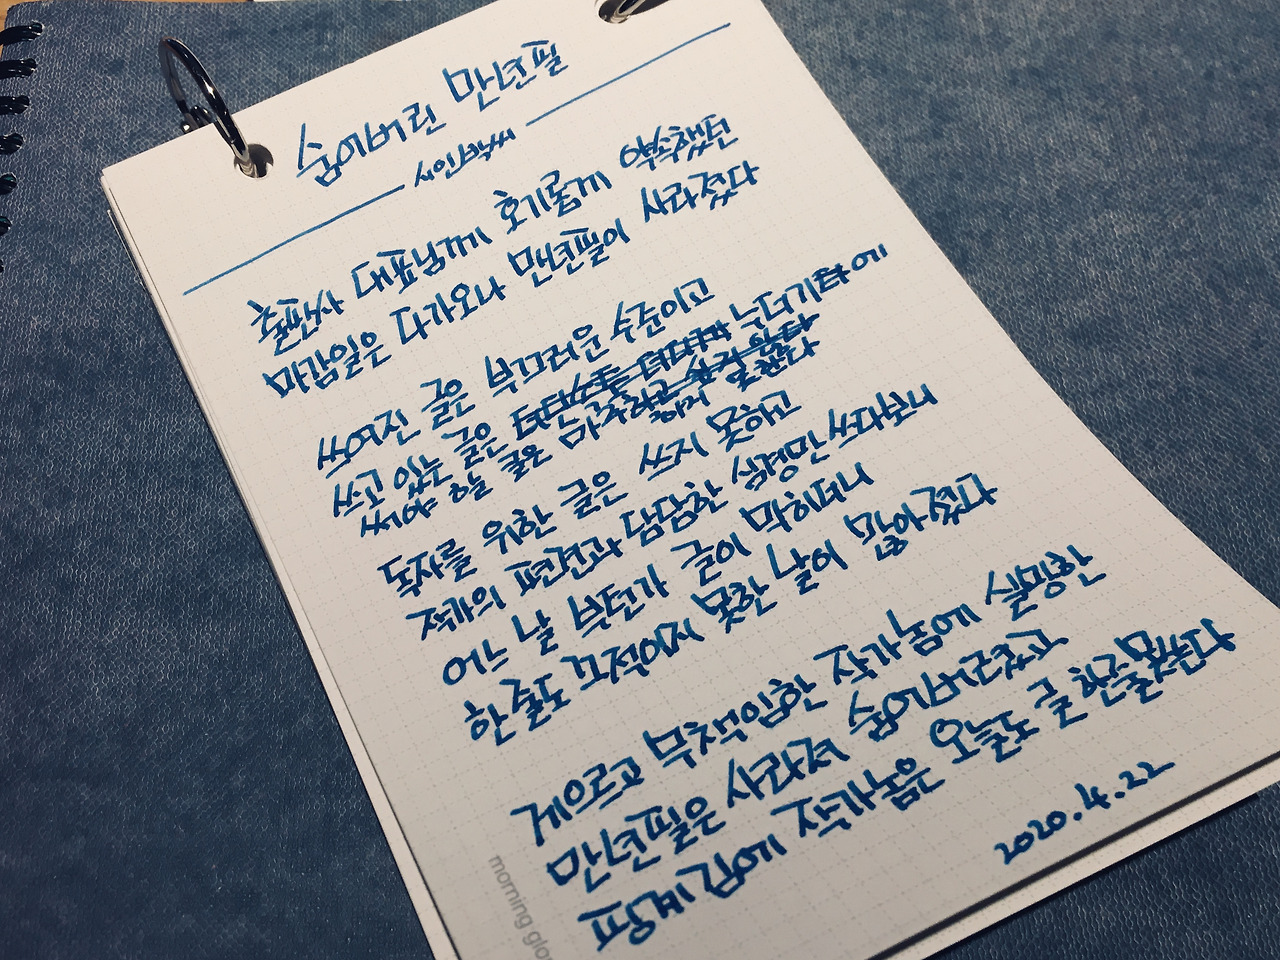 숨어버린 만년필
시인박씨
출판사 대표님께 호기롭게 약속했던
마감일은 다가오나 만년필이 사라졌다
쓰여진 글은 부끄러운 수준이고
쓰고 있는 글은 누더기에
써야 할 글은 마주하지 못한다
독자를 위한 글은 쓰지 못하고
작가의 편견과 답답한 심경만 쓰다보니
어느 날 부턴가 글이 막히더니
한 줄도 끄적이지 못한 날이 많아졌다
게으르고 무책임한 작가놈에 실망한
만년필은 사라져 숨어버렸고
핑계김에 작가놈은 오늘도 글 한줄 못쓴다
2020.4.22
morning glo